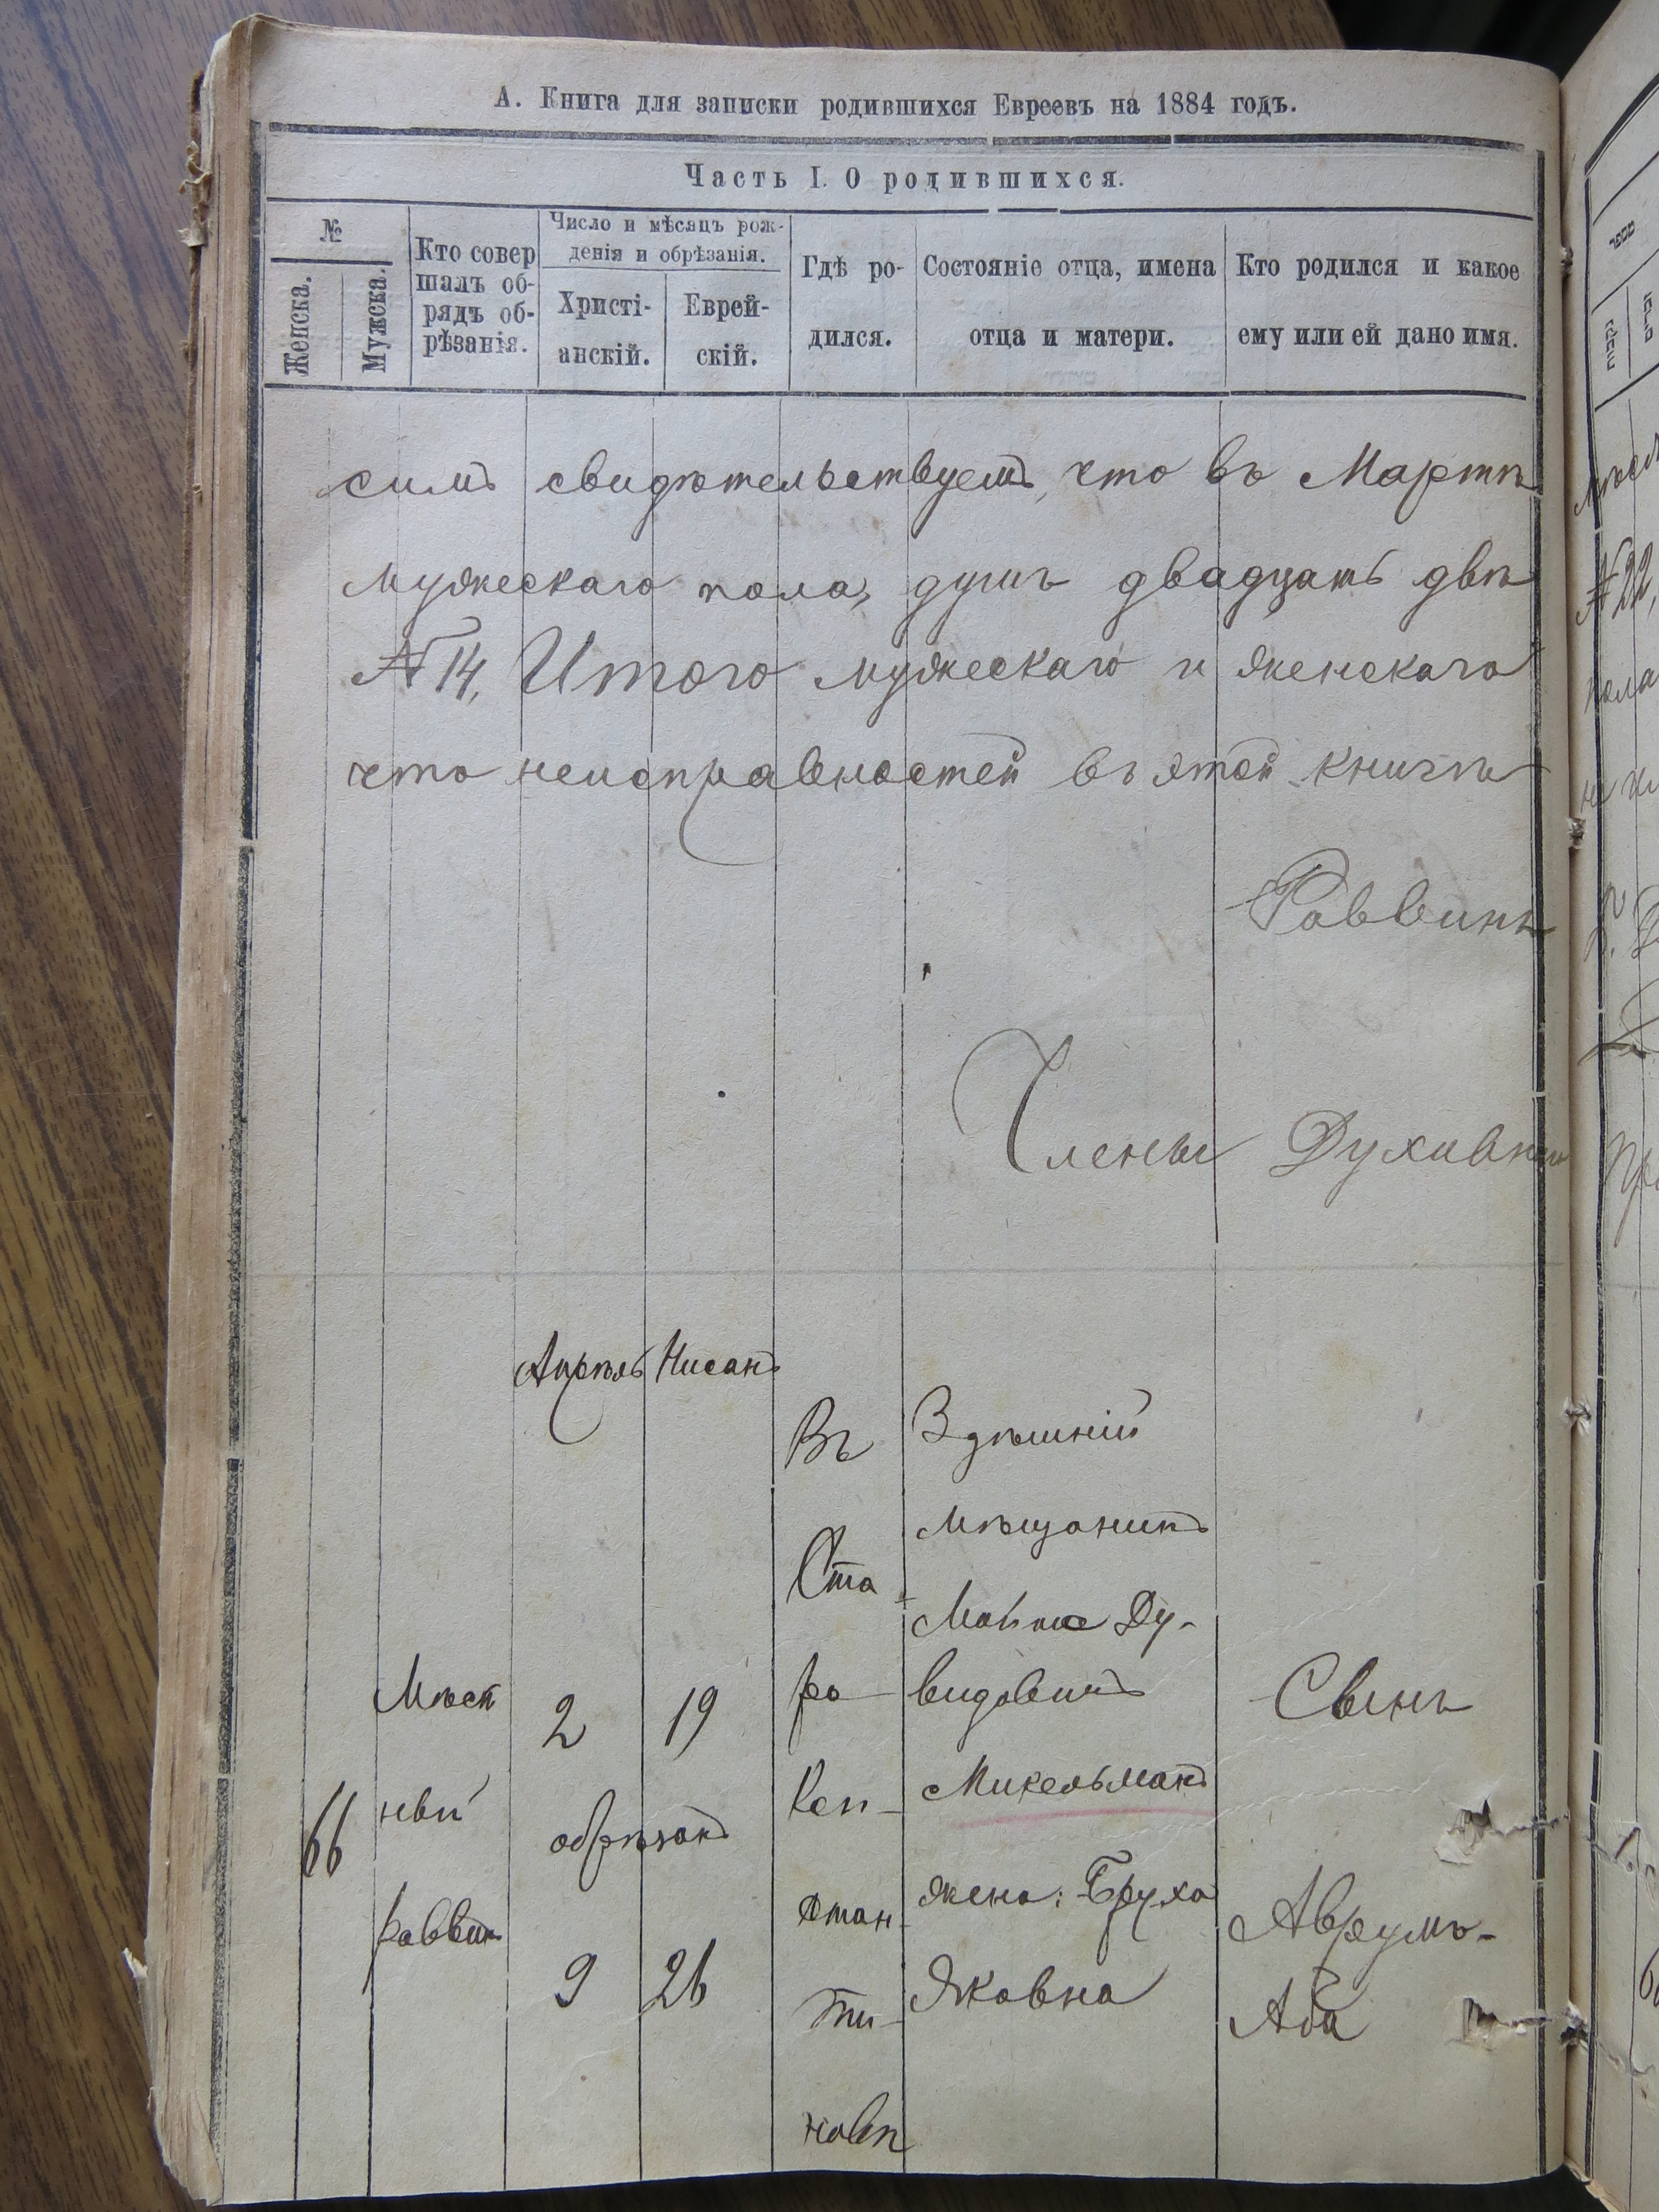 А. Книга для записки родившихся Евреевъ на 1884 годъ.
Часть I. О родившихся.
№
Женска.
Мужска.
Кто совер
шалъ об-
рядъ об-
рѣзанія.
Число и мѣсяцъ рож-
денія и обрѣзанія.
Христі-
анскій.
Еврей-
скій.
Гдѣ ро-
дился.
Состояніе отца, имена
отца и матери.
Кто родился и какое
ему или ей дано имя.
симъ свидѣтельствуемъ, что въ Мартѣ
мужескаго пола, душъ двадцать двѣ
№ 14, Итого мужескаго и женскаго
что неисправностей въ этой книгѣ
Раввинъ
Члены Духовнаго
66
Мѣст
ный
раввин
Апрѣль
2
обрѣзанъ
9
Нисанъ
19
26
Въ
Ста-
ро-
Кон-
стан-
ти-
новѣ
Здѣшній
мѣщанинъ
Ду-
видовичъ
Микельманъ
жена: Бруха
Яковна
Сынъ
Аврумъ-
Аба